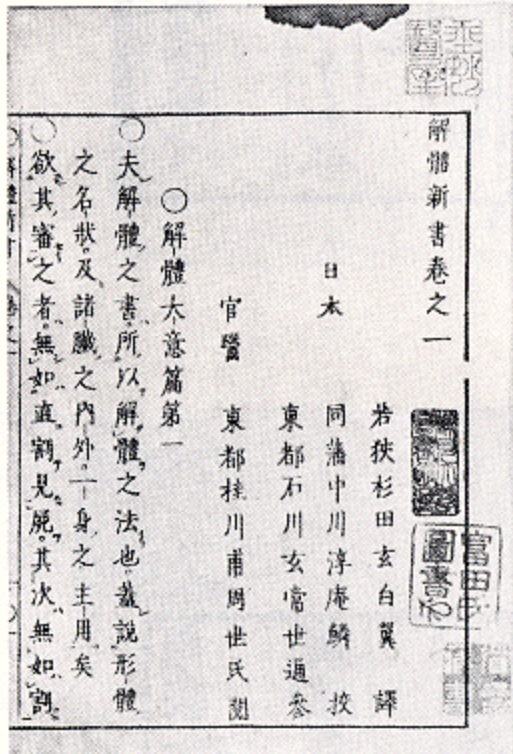 解體新書卷之一
若狹杉田玄白翼 譯
日本 同藩中川淳庵鱗 挍
東都石川玄常世通 參
官醫 東都桂川甫周世民 閲
○解體大意篇第一
○夫解體之書。所以解體之法也。蓋說形體
之名狀及諸臟之內外。一身之主用矣
○欲其審之者。無如直割見屍。其次無如割
富田氏
圖書